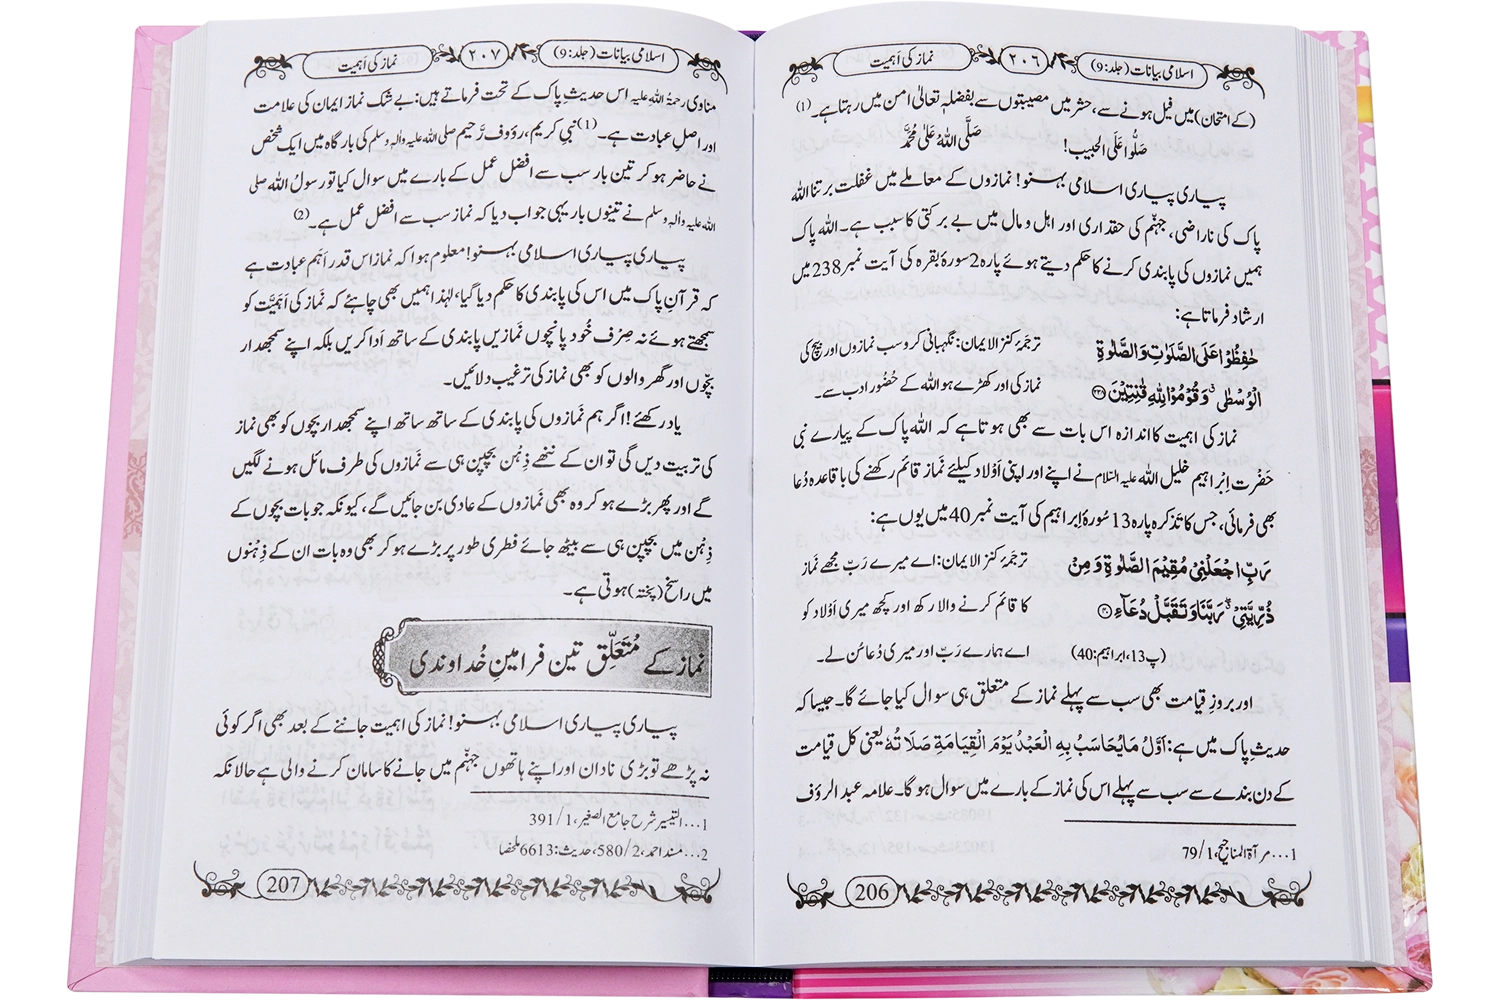 اسلامی بیانات (جلد:9)
۲۰۶
نماز کی اَہمیت
(کے امتحان) میں فیل ہونے سے، حشر میں مصیبتوں سے بفضلہٖ تعالیٰ امن میں رہتا ہے۔ (1)
صَلُّوا عَلَی الْحَبِیب! صَلَّی اللہُ عَلٰی مُحَمَّد
پیاری پیاری اسلامی بہنو! نمازوں کے معاملے میں غفلت برتنا اللہ
پاک کی ناراضی، جہنّم کی حقداری اور اہل و مال میں بے برکتی کا سبب ہے۔ اللہ پاک
ہمیں نمازوں کی پابندی کرنے کا حکم دیتے ہوئے پارہ 2 سورۂ بقرہ کی آیت نمبر 238 میں
ارشاد فرماتا ہے:
حٰفِظُوْا عَلَى الصَّلَوٰتِ وَ الصَّلٰوةِ
الْوُسْطٰىۗ وَ قُوْمُوْا لِلّٰهِ قٰنِتِیْنَ ﴿۲۳۸﴾
ترجمۂ کنز الایمان: نگہبانی کرو سب نمازوں اور بیچ کی
نماز کی اور کھڑے ہو اللہ کے حُضُور ادب سے۔
نماز کی اہمیت کا اندازہ اس بات سے بھی ہوتا ہے کہ اللہ پاک کے پیارے نبی
حَضْرت اِبْراہیم خلیل اللہ علیہ السّلام نے اپنے اور اپنی اَوْلاد کیلئے نَماز قائم رکھنے کی باقاعدہ دُعا
بھی فرمائی، جس کا تذکرہ پارہ 13 سُورۂ اِبراہیم کی آیت نمبر 40 میں یوں ہے:
رَبِّ اجْعَلْنِیْ مُقِیْمَ الصَّلٰوةِ وَ مِنْ
ذُرِّیَّتِیْ ۖۗ رَبَّنَا وَ تَقَبَّلْ دُعَآءِ ﴿۴۰﴾
(پ13، ابراہیم:40)
ترجَمۂ کنز الایمان: اے میرے رَبّ مجھے نَماز
کا قائم کرنے والا رکھ اور کچھ میری اَوْلاد کو
اے ہمارے رَبّ اور میری دُعا سُن لے۔
اور بروزِ قیامت بھی سب سے پہلے نماز کے متعلق ہی سوال کیا جائے گا۔ جیسا کہ
حدیثِ پاک میں ہے: اَوَّلُ مَا یُحَاسَبُ بِهِ الْعَبْدُ یَوْمَ الْقِیَامَةِ صَلَاتُهٗ یعنی کل قیامت
کے دن بندے سے سب سے پہلے اس کی نماز کے بارے میں سوال ہو گا۔ علامہ عبد الرؤف
1... مرآۃ المناجیح، 1/79
206
اسلامی بیانات (جلد:9)
۲۰۷
نماز کی اَہمیت
مناوی رحمۃُ اللہِ علیہ اس حدیثِ پاک کے تحت فرماتے ہیں: بے شک نماز ایمان کی علامت
اور اصلِ عبادت ہے۔ (1) نبیِ کریم، رؤوف رَّحیم صلی اللہ علیہ والہٖ وسلم کی بارگاہ میں ایک شخص
نے حاضر ہو کر تین بار سب سے افضل عمل کے بارے میں سوال کیا تو رسولُ اللہ صلی
اللہ علیہ والہٖ وسلم نے تینوں بار یہی جواب دیا کہ نماز سب سے افضل عمل ہے۔ (2)
پیاری پیاری اسلامی بہنو! معلوم ہوا کہ نماز اس قدر اَہَم عبادت ہے
کہ قرآنِ پاک میں اس کی پابندی کا حکم دیا گیا، لہٰذا ہمیں بھی چاہئے کہ نَماز کی اَہَمِیَّت کو
سمجھتے ہوئے نہ صِرْف خُود پانچوں نَمازیں پابندی کے ساتھ اَدا کریں بلکہ اپنے سمجھدار
بچّوں اور گھر والوں کو بھی نماز کی ترغیب دلائیں۔
یاد رکھئے! اگر ہم نَمازوں کی پابندی کے ساتھ ساتھ اپنے سمجھدار بچوں کو بھی نماز
کی تربیت دیں گی تو ان کے ننھے ذِہْن بچپن ہی سے نَمازوں کی طرف مائل ہونے لگیں
گے اور پھر بڑے ہو کر وہ بھی نَمازوں کے عادی بن جائیں گے، کیونکہ جو بات بچوں کے
ذِہْن میں بچپن ہی سے بیٹھ جائے فطری طور پر بڑے ہو کر بھی وہ بات ان کے ذِہْنوں
میں راسخ (پختہ) ہوتی ہے۔
نماز کے مُتَعَلِّق تین فرامینِ خُداوندی
پیاری پیاری اسلامی بہنو! نماز کی اہمیت جاننے کے بعد بھی اگر کوئی
نہ پڑھے تو بڑی نادان اور اپنے ہاتھوں جہنّم میں جانے کا سامان کرنے والی ہے حالانکہ
1... التیسیر شرح جامع الصغیر، 1/391
2... مسند احمد، 2/580، حدیث: 6613 ملخصًا
207